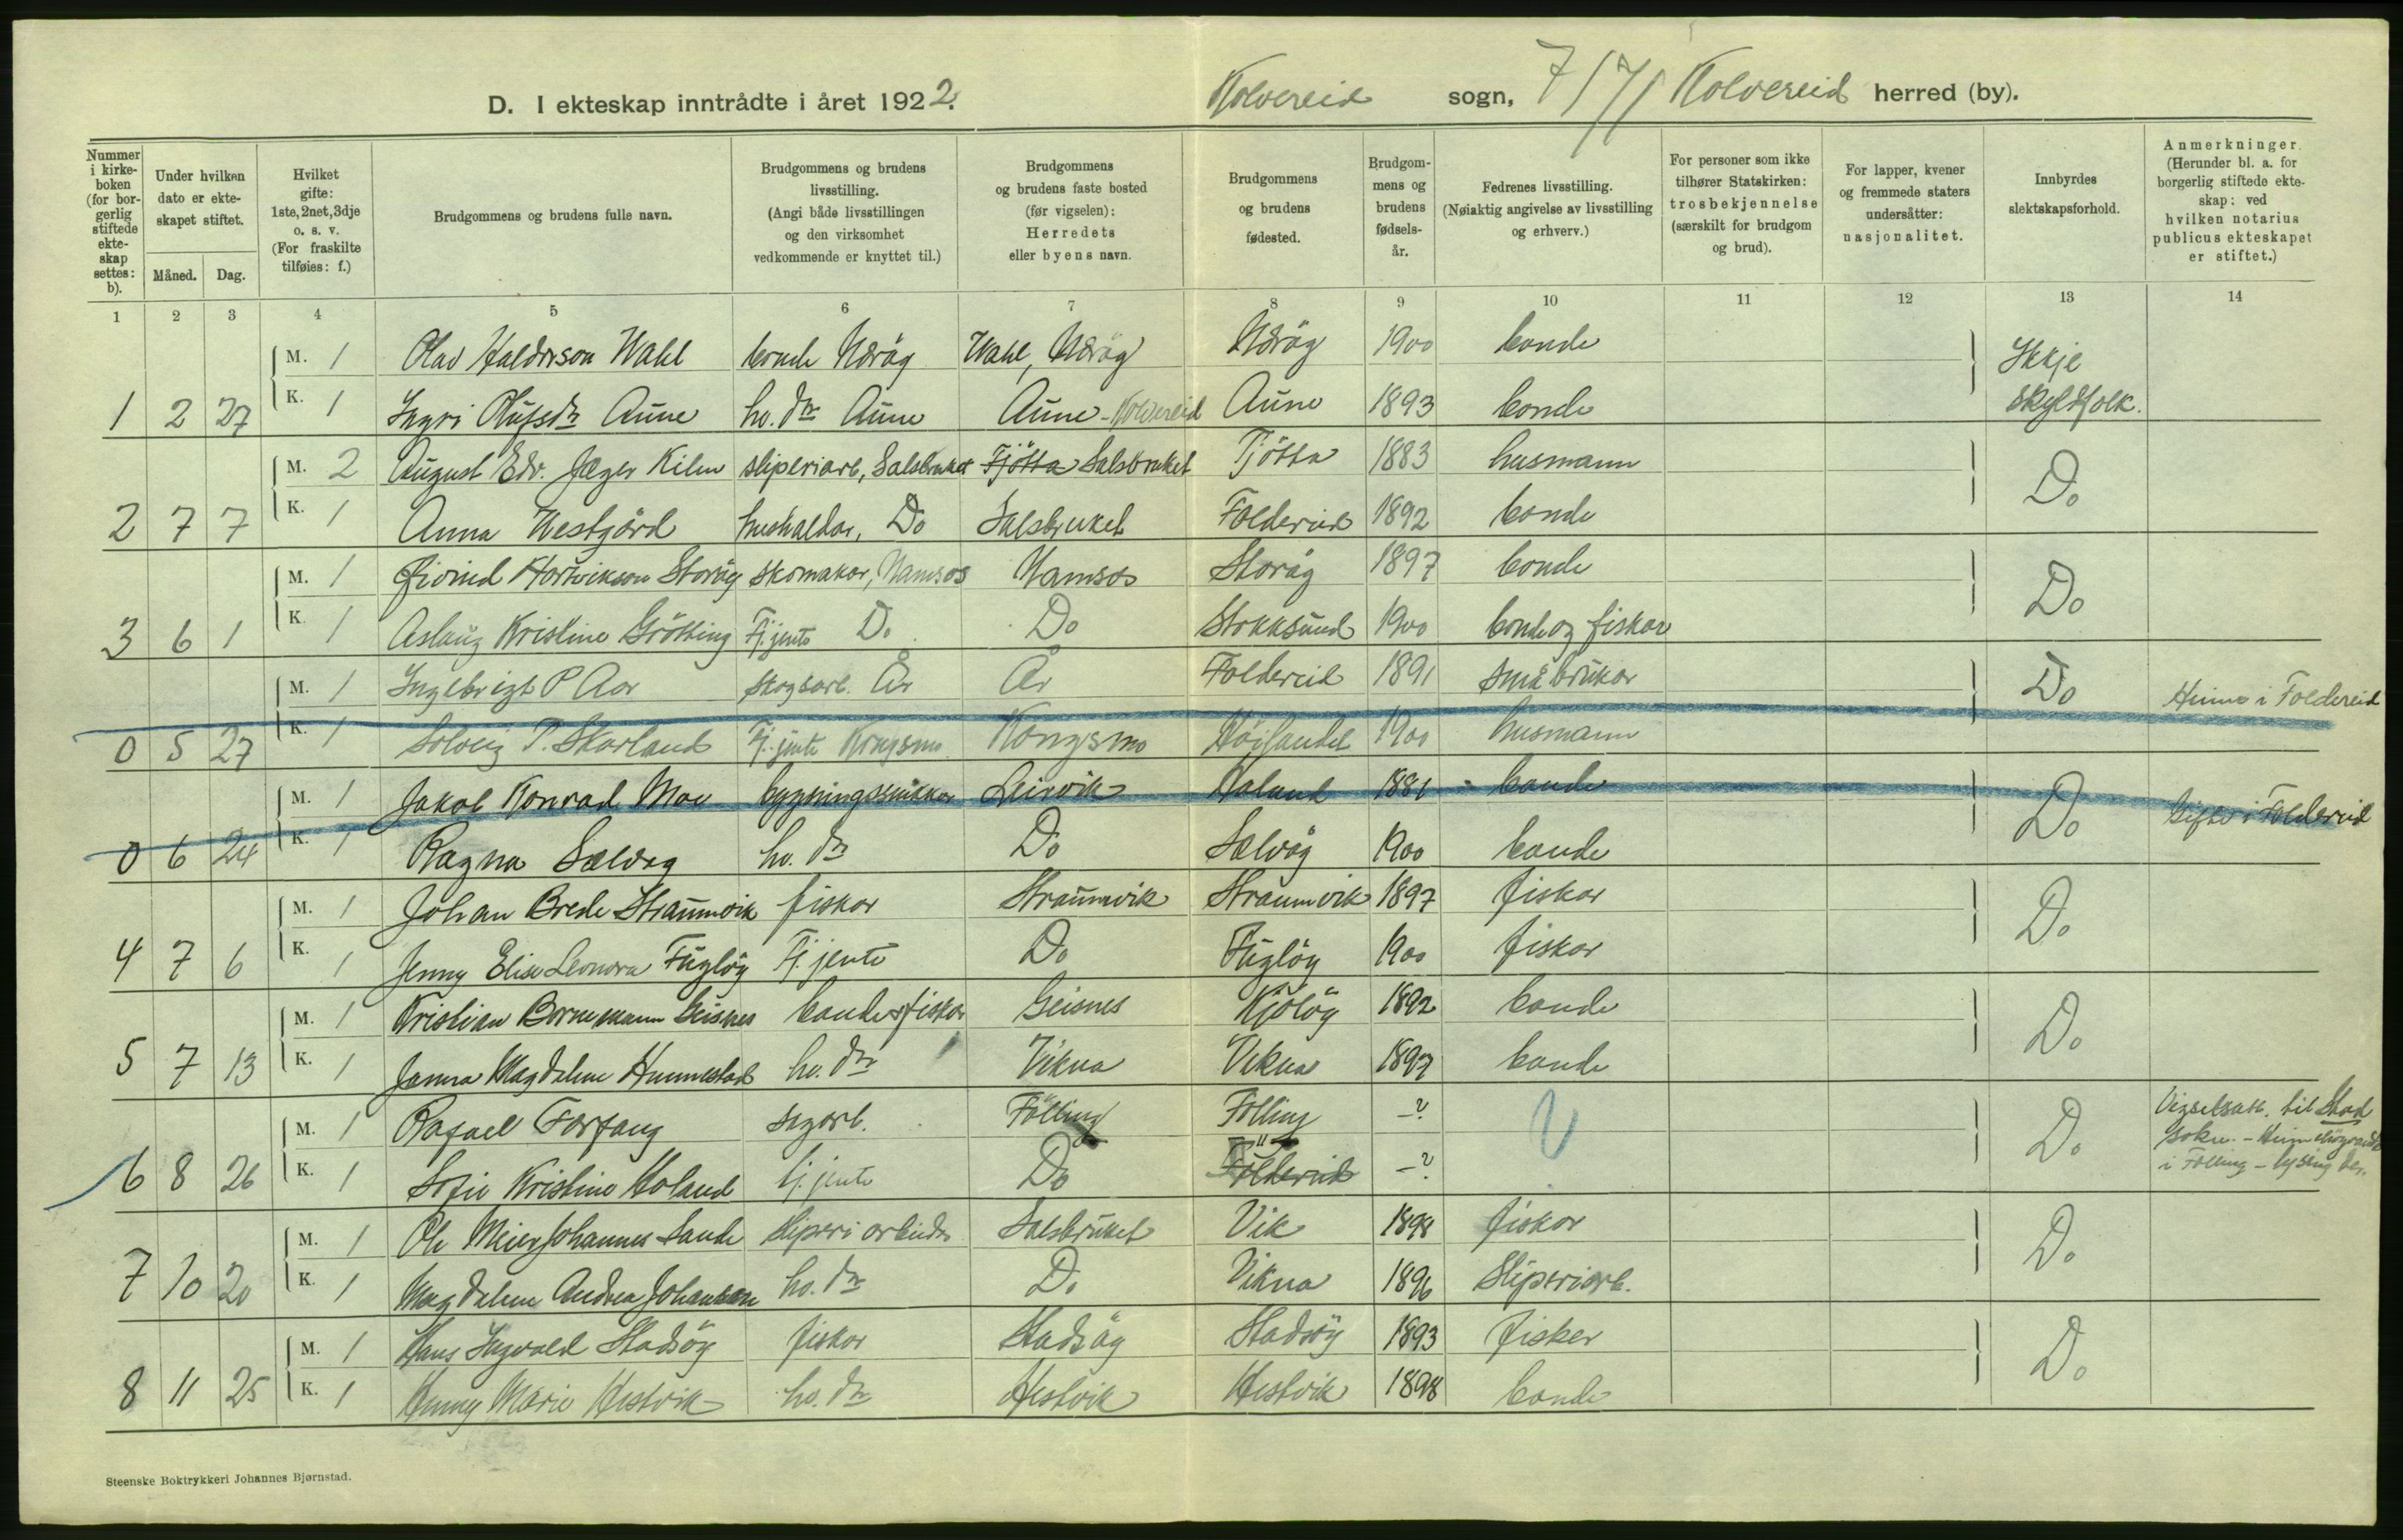 D. I ekteskap inntrådte i året 1922. Kolvereid sogn, 7/7/ Kolvereid herred (by).
Nummer i kirkeboken (for borgerlig stiftede ekteskap settes: b).
Under hvilken dato er ekteskapet stiftet.
Måned. Dag.
Hvilket gifte: 1ste, 2net, 3dje o. s. v. (For fraskilte tilføies: f.)
Brudgommens og brudens fulle navn.
Brudgommens og brudens livsstilling. (Angi både livsstillingen og den virksomhet vedkommende er knyttet til.)
Brudgommens og brudens faste bosted (før vigselen): Herredets eller byens navn.
Brudgommens og brudens fødested.
Brudgommens og brudens fødselsår.
Fedrenes livsstilling. (Nøiaktig angivelse av livsstilling og erhverv.)
For personer som ikke tilhører Statskirken: trosbekjennelse (særskilt for brudgom og brud).
For lapper, kvener og fremmede staters undersåtter: nasjonalitet.
Innbyrdes slektskapsforhold.
Anmerkninger. (Herunder bl. a. for borgerlig stiftede ekteskap: ved hvilken notarius publicus ekteskapet er stiftet.)
1 2 3 4 5 6 7 8 9 10 11 12 13 14
M. 1 Olav Haldorson Wahl bonde Nærøy Wahl, Nærøy Nærøy 1900 bonde Ikkje
1 2 27 K. 1 Ingri Olufsdtr Aune ho. dtr Aune Aune - Kolvereid Aune 1893 bonde skyldfolk.
M. 2 August Edv. Jæger Kilen sliperiarb, Salsbruket Tjötta Salsbruket Tjötta 1883 husmann Do
2 7 7 K. 1 Anna Westgård hushaldar, Do Salsbruket Foldereid 1892 bonde
M. 1 Eivind Hartvikson Storöy skomakar, Namsos Namsos Storöy 1897 bonde Do
3 6 1 K. 1 Aslaug Kristine Grötting Tj.jente Do Do Stokksund 1900 bonde og fiskar
M. 1 Ingebrigt P Aar skogsarb. År År Foldereid 1891 småbrukar Do Heime i Foldereid
0 5 27 K. 1 Solveig P. Skarland Tj.jente Kongsmo Kongsmo Höilandet 1900 husmann
M. 1 Jakob Konrad Moe bygningssnikkar Leirvik Haland 1881 bonde Do Gifte i Foldereid
0 6 24 K. 1 Ragna Sælvåg ho. dtr Do Salvåg 1900 bonde
M. 1 Johan Brede Straumvik fiskar Straumvik Straumvik 1897 fiskar Do
4 7 6 K. 1 Jenny Elise Leonora Fuglöy Tj. jente Do Fuglöy 1900 fiskar
M. 1 Kristian Bornemann Geisnes bonde og fiskar Geisnes Kjölöy 1892 bonde Do
5 7 13 K. 1 Janna Magdalene Hunnestad ho. dtr Vikna Vikna 1897 bonde
M. 1 Rafael Forfang sagarb. Fölling Fölling -? Do Vigselsatt. til Stod
6 8 26 K. 1 Sofie Kristine Holand tj. jente Do Foldereid -?
sokn. - Heim
i Fölling - lysing her.
M. 1 Ole Meier Johannes Sande Sliperi arbeider Salsbruket Vik 1898 fiskar Do
7 10 20 K. 1 Magdalene Andrea Johansen ho. dtr Do Vikna 1896 Sliperiarb.
M. 1 Hans Ingvald Stadsöy fiskar Stadsöy Stadsöy 1893 fisker Do
8 11 25 K. 1 Henny Marie Hestvik ho. dtr Hestvik Hestvik 1898 bonde
Steenske Boktrykkeri Johannes Bjørnstad.